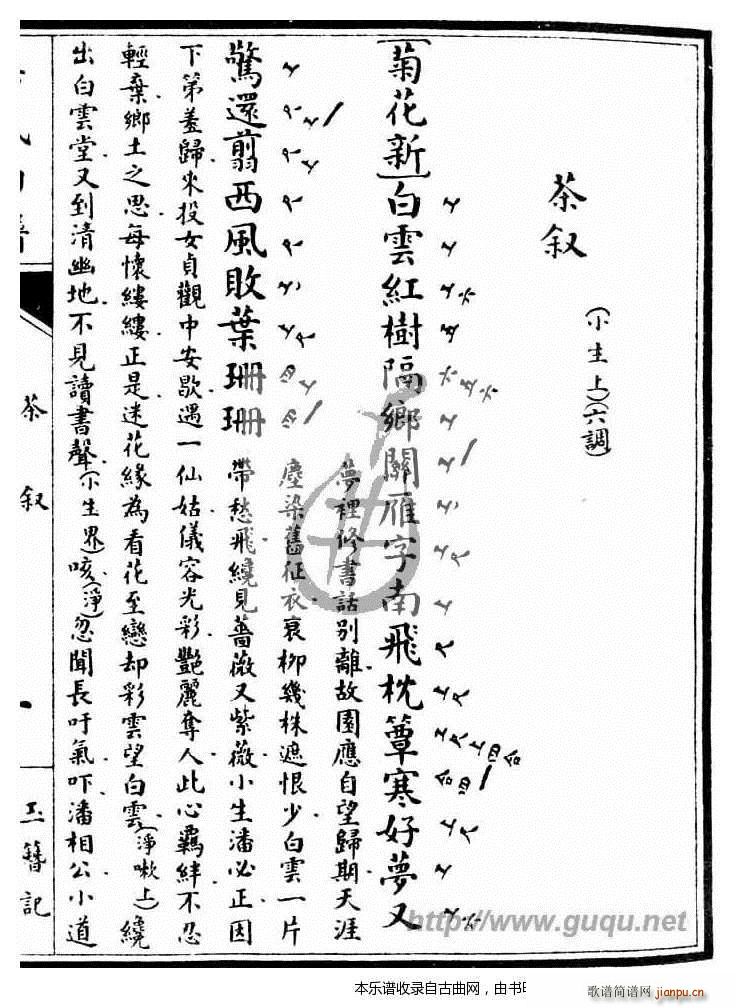 茶叙
(小生上)(六調)
[菊花新]白雲紅樹隔鄉關雁字南飛枕簟寒好夢又
驚還翦西風敗葉珊珊
夢裡修書話別離故園應自望歸期天涯
塵染舊征衣衰柳幾株遮恨少白雲一片
帶愁飛繞見薔薇又紫薇小生潘必正因
下第羞歸來投女貞觀中安歇遇一仙姑儀容光彩艷麗奪人此心羈絆不忍
輕棄鄉土之思每懷縷縷正是迷花緣為看花至戀却彩雲望白雲(淨嗽上)纔
出白雲堂又到清幽地不見讀書聲(小生界)咳(淨)忽聞長吁氣吓潘相公小道
茶叙
玉簪記
http://www.guqu.net
本乐谱收录自古曲网，由书
歌谱简谱网
jianpu.cn